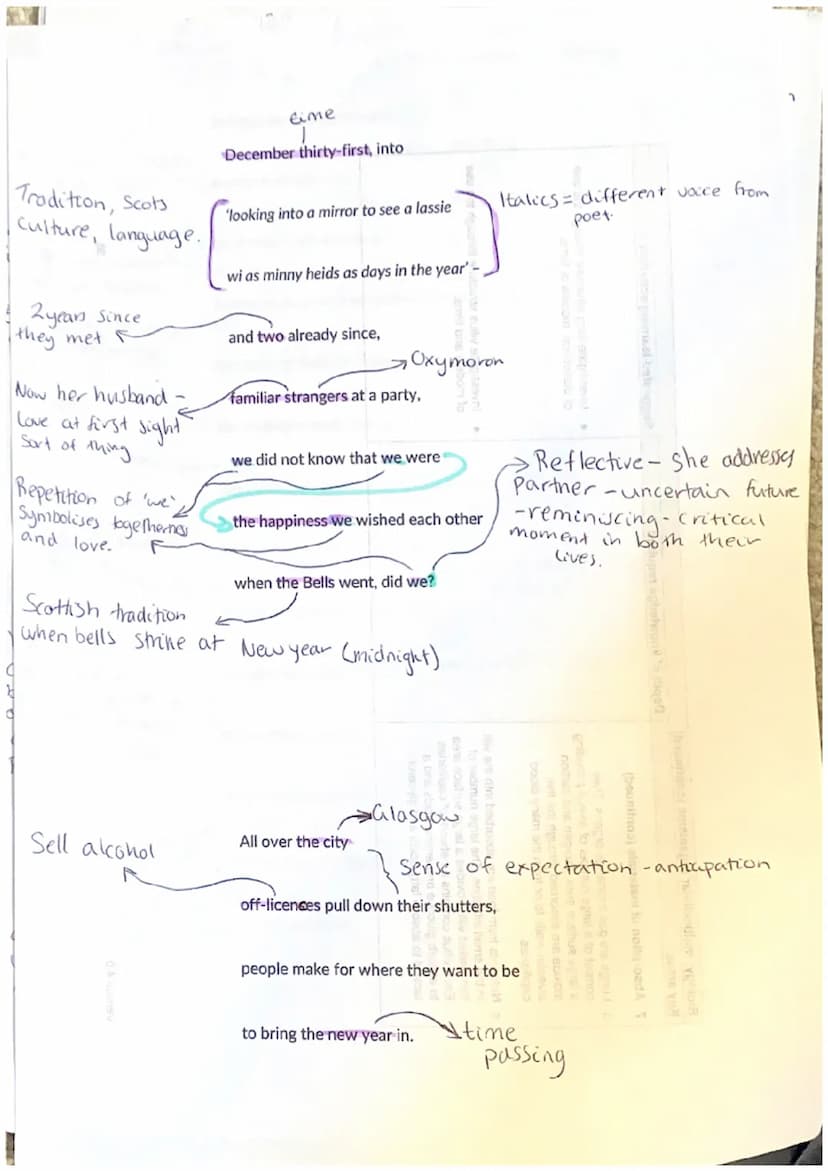 time
December thirty-first, into
Tradition, Scots
culture, language.
'looking into a mirror to see a lassie
wi as minny heids as days in the year' –
Italics = different voice from
poet.
2 years since
they met
and two already since,
Oxymoron
familiar strangers at a party,
Now her husband -
love at first sight
Sort of thing
we did not know that we were
Repetition of 'we'
Symbolises togetherness
and love.
the happiness we wished each other
when the Bells went, did we?
Reflective - she addresses
partner - uncertain future
- reminiscing - critical
moment in both their
lives.
Scottish tradition
when bells strike at New year (midnight)
Glasgow
All over the city
Sell alcohol
Sense of expectation - anticipation
off-licences pull down their shutters,
people make for where they want to be
to bring the new year in.
time
passing